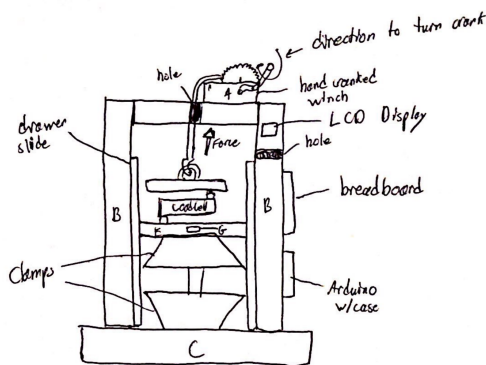 direction to turn crank
hole
A
hand cranked
winch
LCD Display
drawer
slide
Force
hole
B
B
breadboard
Loadcell
K
G
Clamps
Arduino
w/case
C